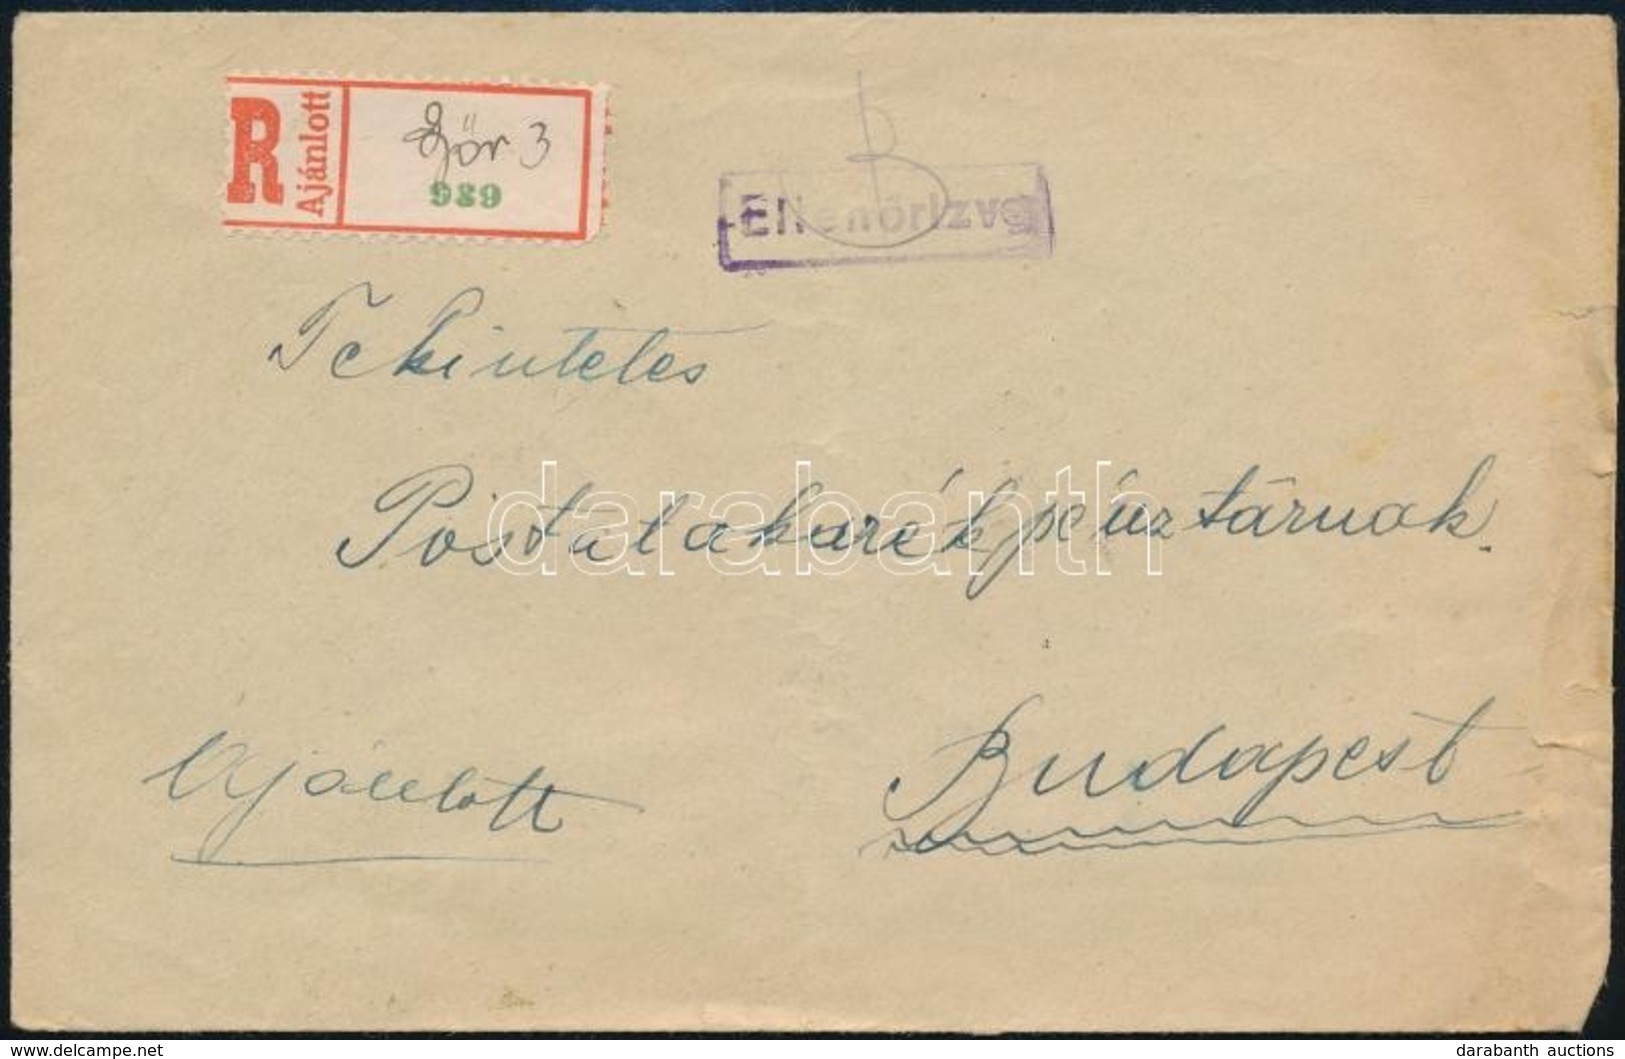 R
Ajánlott
Győr 3
986
Ellenőrizve
Tekintetes
Postatakarékpénztárnak.
darabanth
Ajánlott
Budapest
www.delcampe.net
darabanth auctions